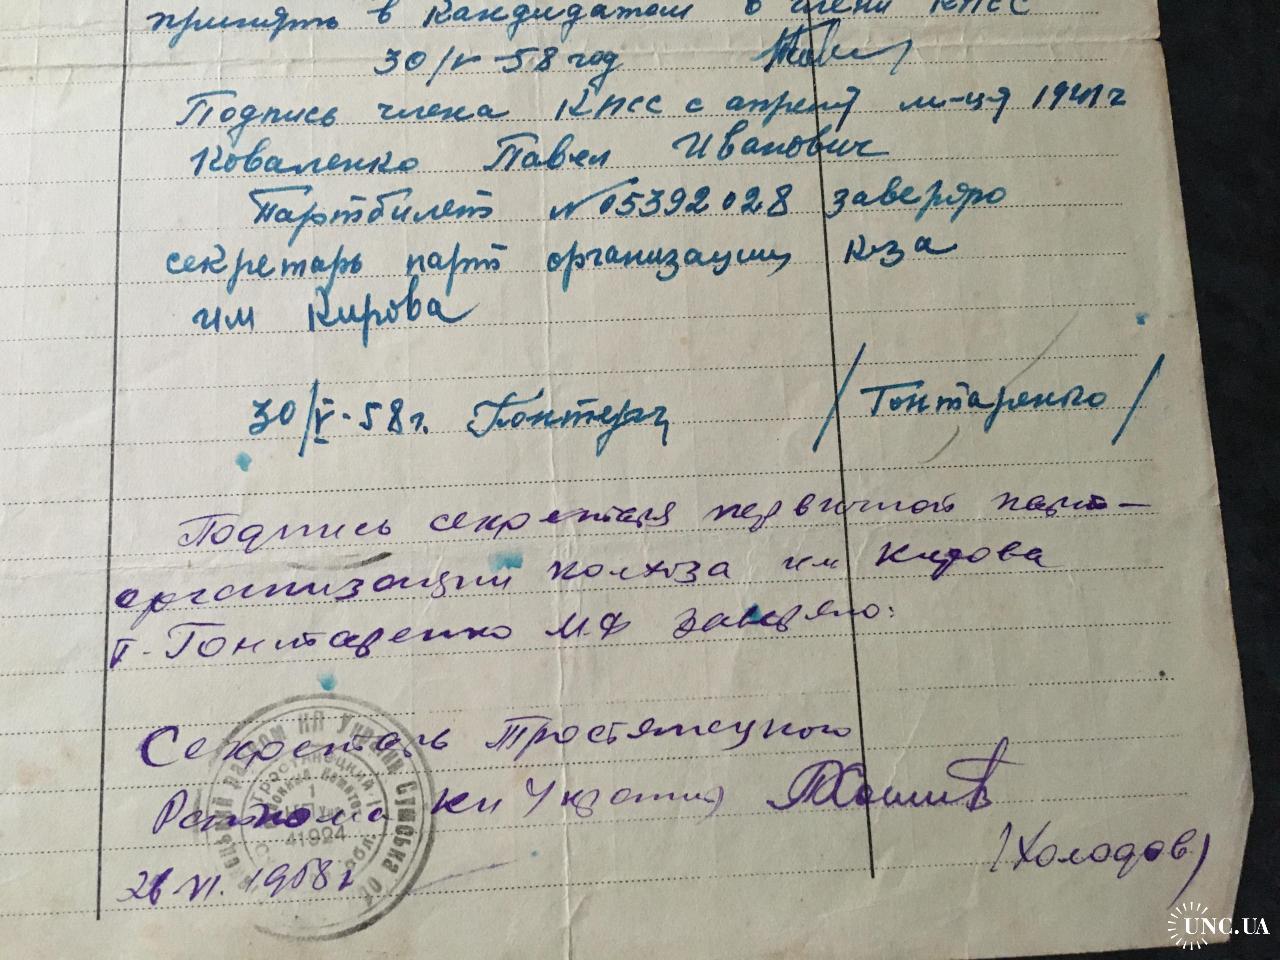 принять в кандидатом в члени КПСС
30/V-58 год
Подпись члена КПСС с апреля м-ця 1941 г
Коваленко Павел Иванович
Партбилет №05392028 заверяю
секретарь парт организации к-за
им Кирова
30/V-58 г. /Гонтаренко/
Подпись секретаря первичной парт-
организации колхоза им Кирова
т. Гонтаренко М.Ф заверяю:
Секретарь Тростянецкого
Райкома КП Украины
(Холодов)
26 VI. 1958 г
КП України Сумська
41924
UNC.UA